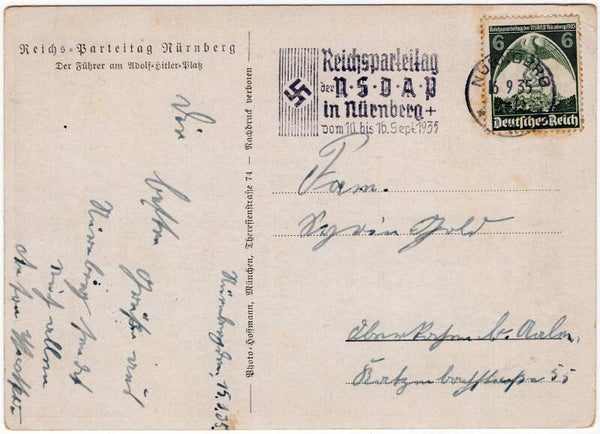 Reichs-Parteitag Nürnberg
Der Führer am Adolf-Hitler-Platz
Reichsparteitag
der N·S·D·A·P
in Nürnberg +
vom 10. bis 16. Sept. 1935
Reichsparteitag der N.S.D.A.P. Nürnberg 1935
6 6
Deutsches Reich
NÜRNBERG
16.9.35
Photo-Hoffmann, München, Theresienstraße 74 — Nachdruck verboten
Die
besten
Grüße aus
Nürnberg sendet
euch allen
Anton
Nürnberg, den 15.9.35.
Fam.
Gold
Oberkochen b. Aalen,
Katzenbachstraße 55